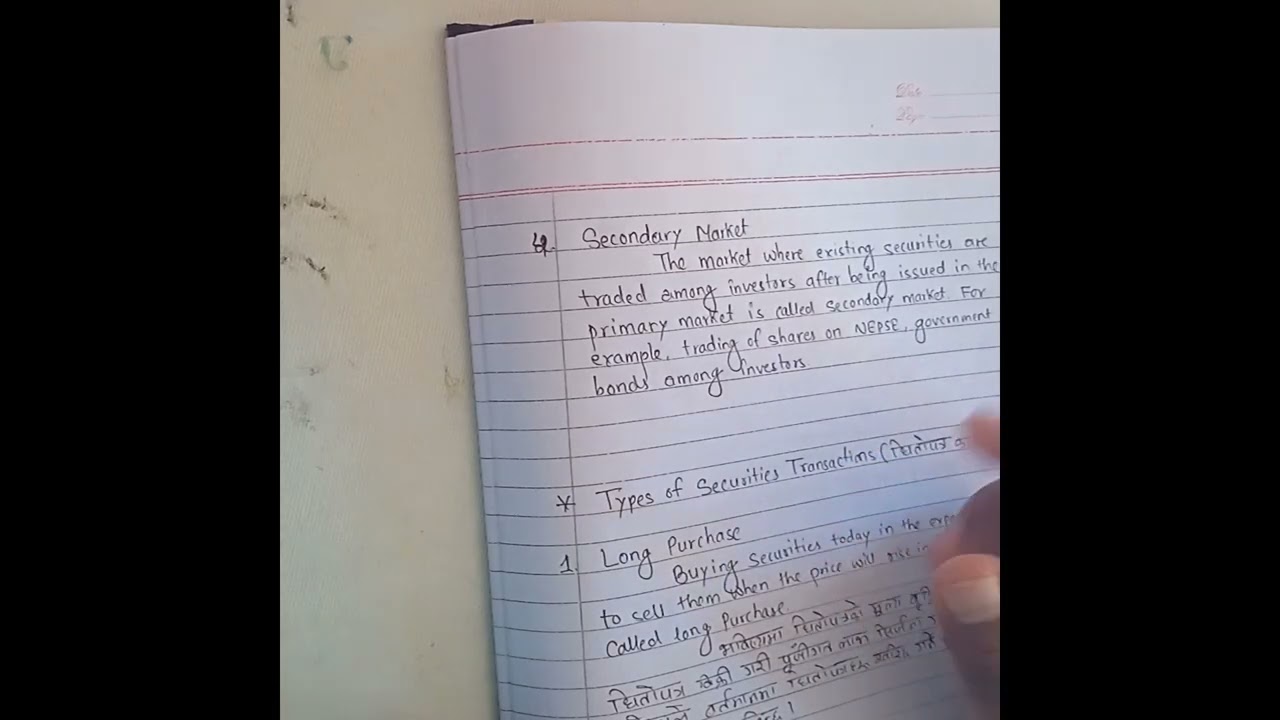 4. Secondary Market
The market where existing securities are
traded among investors after being issued in the
primary market is called Secondary market. For
example, trading of shares on NEPSE, government
bonds among investors.
* Types of Securities Transactions (धितोपत्र
1. Long Purchase
Buying Securities today in the
to sell them when the price will rise in
Called long Purchase.
धितोपत्रको मूल्य
धितोपत्र बिक्री गरी पूँजीगत लाभ
वर्तमानमा धितोपत्र खरिद गर्ने